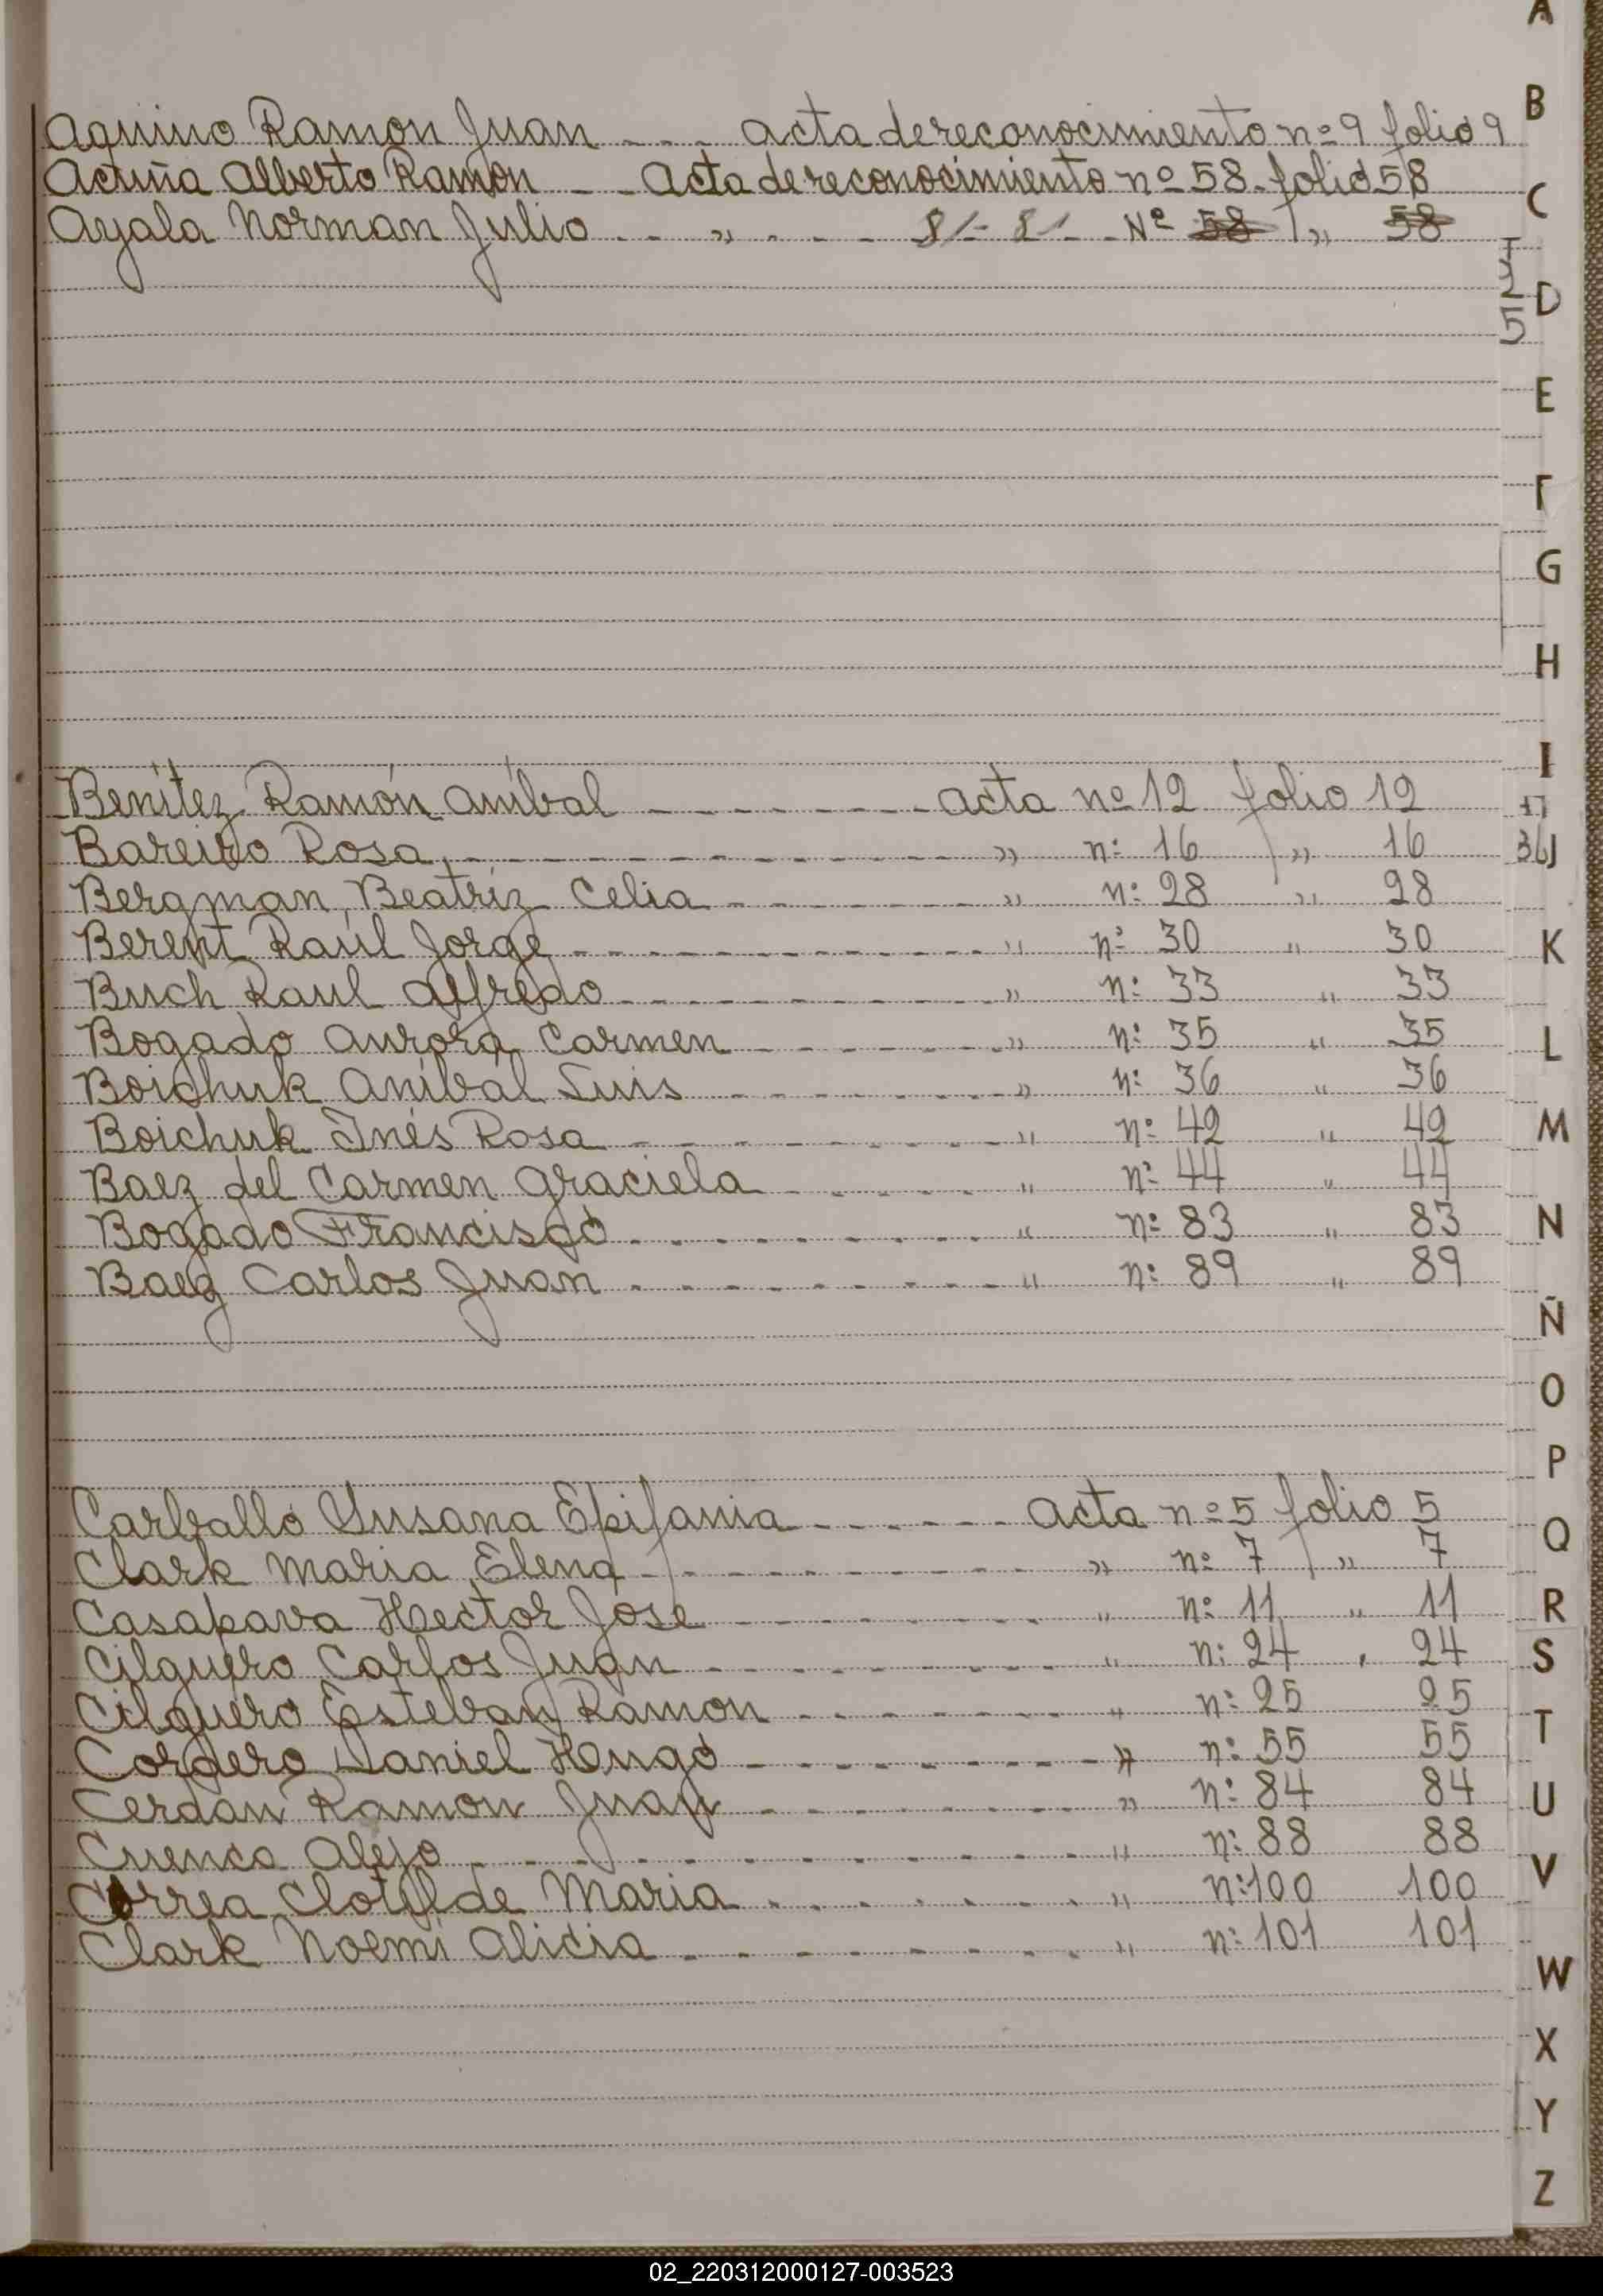 Aquino Ramon Juan - - - acta de reconocimiento nº 9 folio 9
Acuña Alberto Ramon - - Acta de reconocimiento nº 58 - folio 58
Ayala Norman Julio - - " - - - 81 - 81 - - Nº 58 " 58
Benítez Ramón Aníbal - - - - - - - acta nº 12 folio 12
Bareiro Rosa - - - - - - - " nº 16 " 16
Bergman, Beatriz Celia - - - - - - - " nº 28 " 28
Berent Raúl Jorge - - - - - - - " nº 30 " 30
Buch Raul Alfredo - - - - - - - " nº 33 " 33
Bogado Aurora Carmen - - - - - - - " nº 35 " 35
Boichuk Aníbal Luis - - - - - - - " nº 36 " 36
Boichuk Inés Rosa - - - - - - - " nº 42 " 42
Baez del Carmen Graciela - - - - - - " nº 44 " 44
Bogado Francisco - - - - - - - " nº 83 " 83
Baez Carlos Juan - - - - - - - " nº 89 " 89
Carballo Susana Epifania - - - - - - Acta nº 5 folio 5
Clark Maria Elena - - - - - - - " nº 7 " 7
Casapava Hector Jose - - - - - - - " nº 11 " 11
Cilguero Carlos Juan - - - - - - - " nº 24 " 24
Cilguero Esteban Ramon - - - - - - - " nº 25 25
Cordero Daniel Hugo - - - - - - - " nº 55 55
Cerdan Ramon Juan - - - - - - - " nº 84 84
Cuenca Alejo - - - - - - - " nº 88 88
Correa Clotilde Maria - - - - - - - " nº 100 100
Clark Noemi Alicia - - - - - - - " nº 101 101
A
B
C
D
5
E
F
G
H
I
17
36 J
K
L
M
N
Ñ
O
P
Q
R
S
T
U
V
W
X
Y
Z
02_220312000127-003523